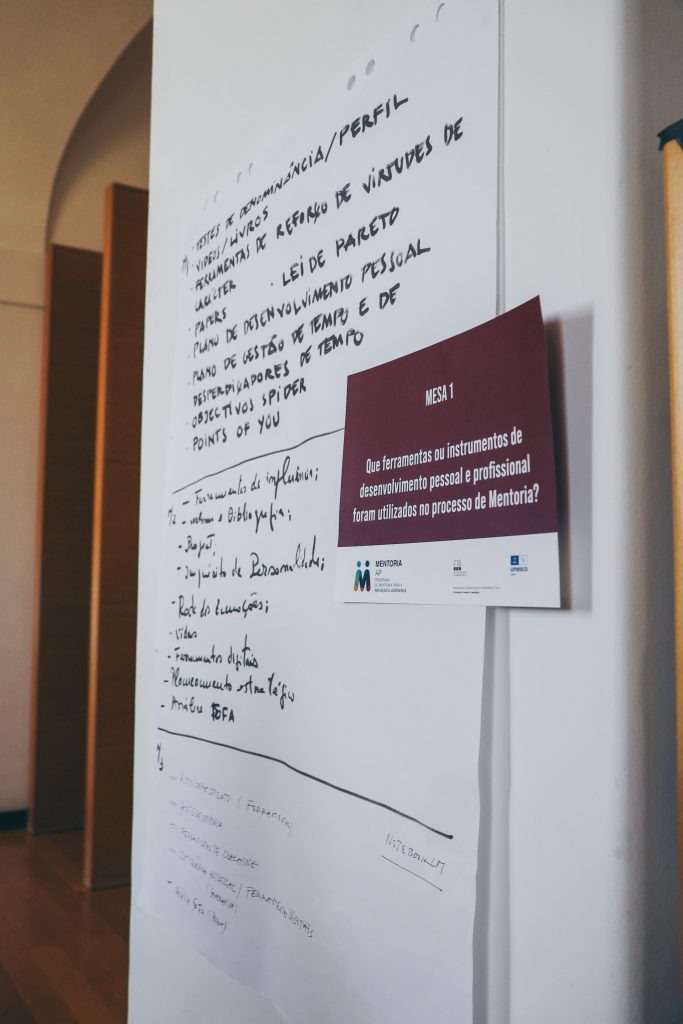 M1
· TESTES DE DENOMINÂNCIA/PERFIL
· VIDEOS/LIVROS
· FERRAMENTAS DE REFORÇO DE VIRTUDES DE
CARÁCTER
· PAPERS
· LEI DE PARETO
· PLANO DE DESENVOLVIMENTO PESSOAL
· PLANO DE GESTÃO DE TEMPO E DE
DESPERDIÇADORES DE TEMPO
· OBJECTIVOS SPIDER
· POINTS OF YOU
- Ferramentas de influência;
e Bibliografia;
- Inquérito de Personalidade;
- Roda das Emoções;
- Vídeos
- Ferramentas digitais
- Planeamento estratégico
- Análise SOFA
— AUTOCONHECIMENTO (FERRAMENTAS)
— FERRAMENTAS DE COACHING
— INTELIGÊNCIA ARTIFICIAL / FERRAMENTAS DIGITAIS
NOTEBOOKLM
MESA 1
Que ferramentas ou instrumentos de
desenvolvimento pessoal e profissional
foram utilizados no processo de Mentoria?
MENTORIA
AP
PROGRAMA
DE MENTORIA PARA A
INOVAÇÃO E LIDERANÇA
ina
umesco